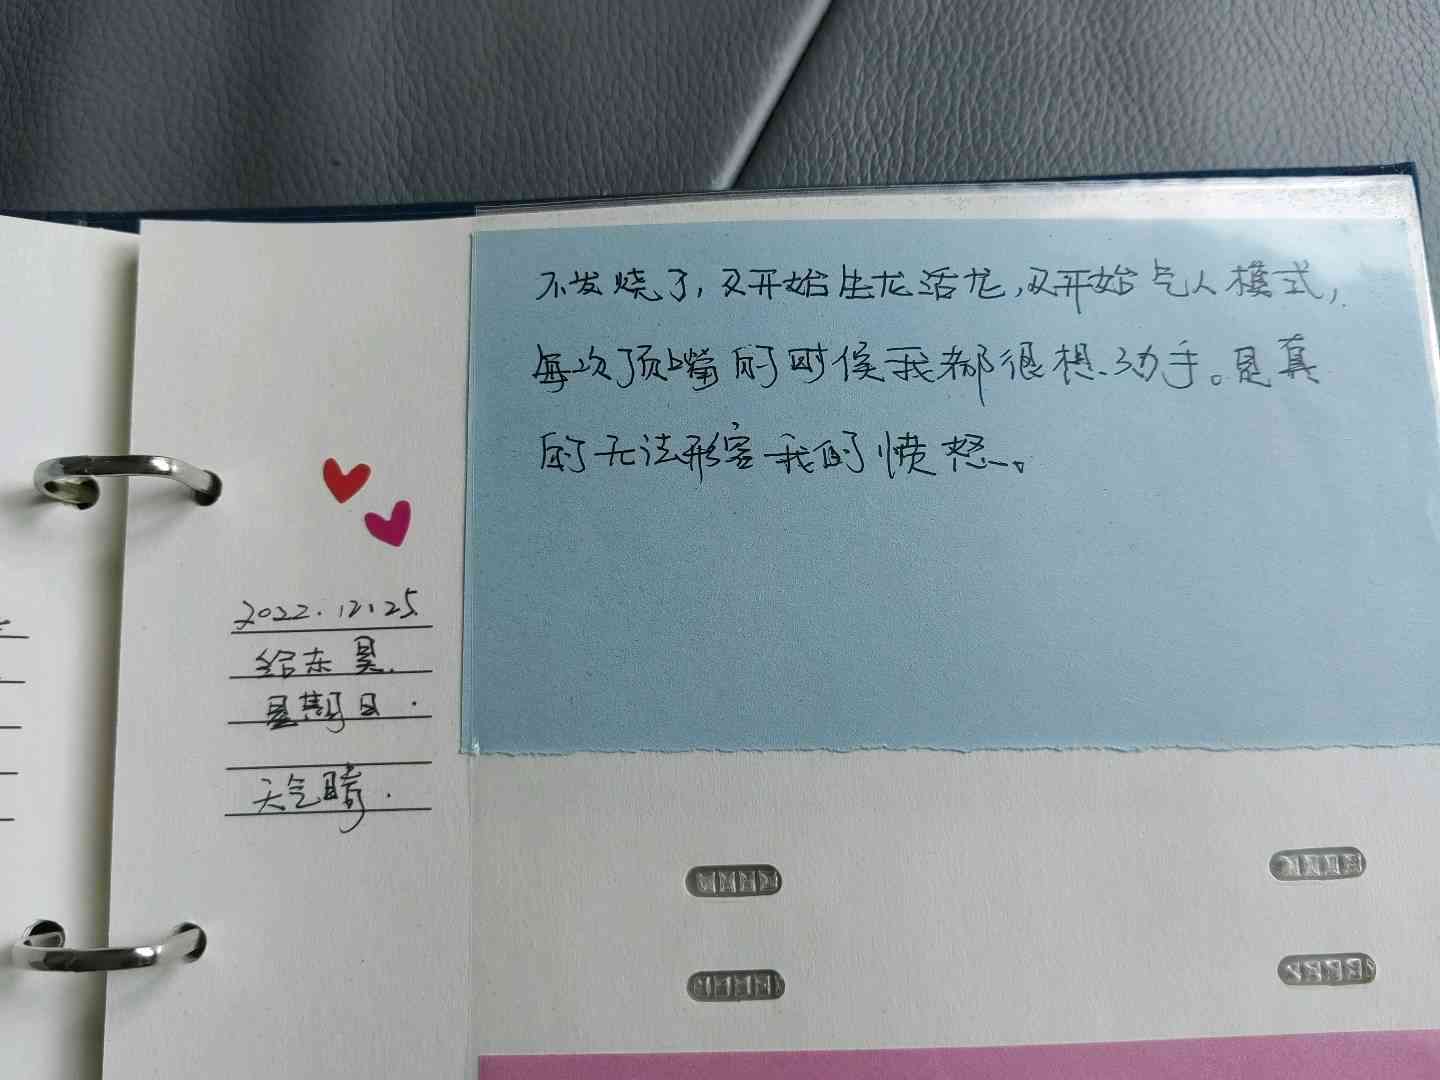 2022.12.25
给东昊.
星期日.
天气晴.
不发烧了,又开始生龙活龙,又开始气人模式,
每次顶嘴的时候我都很想动手。是真
的无法形容我的愤怒。